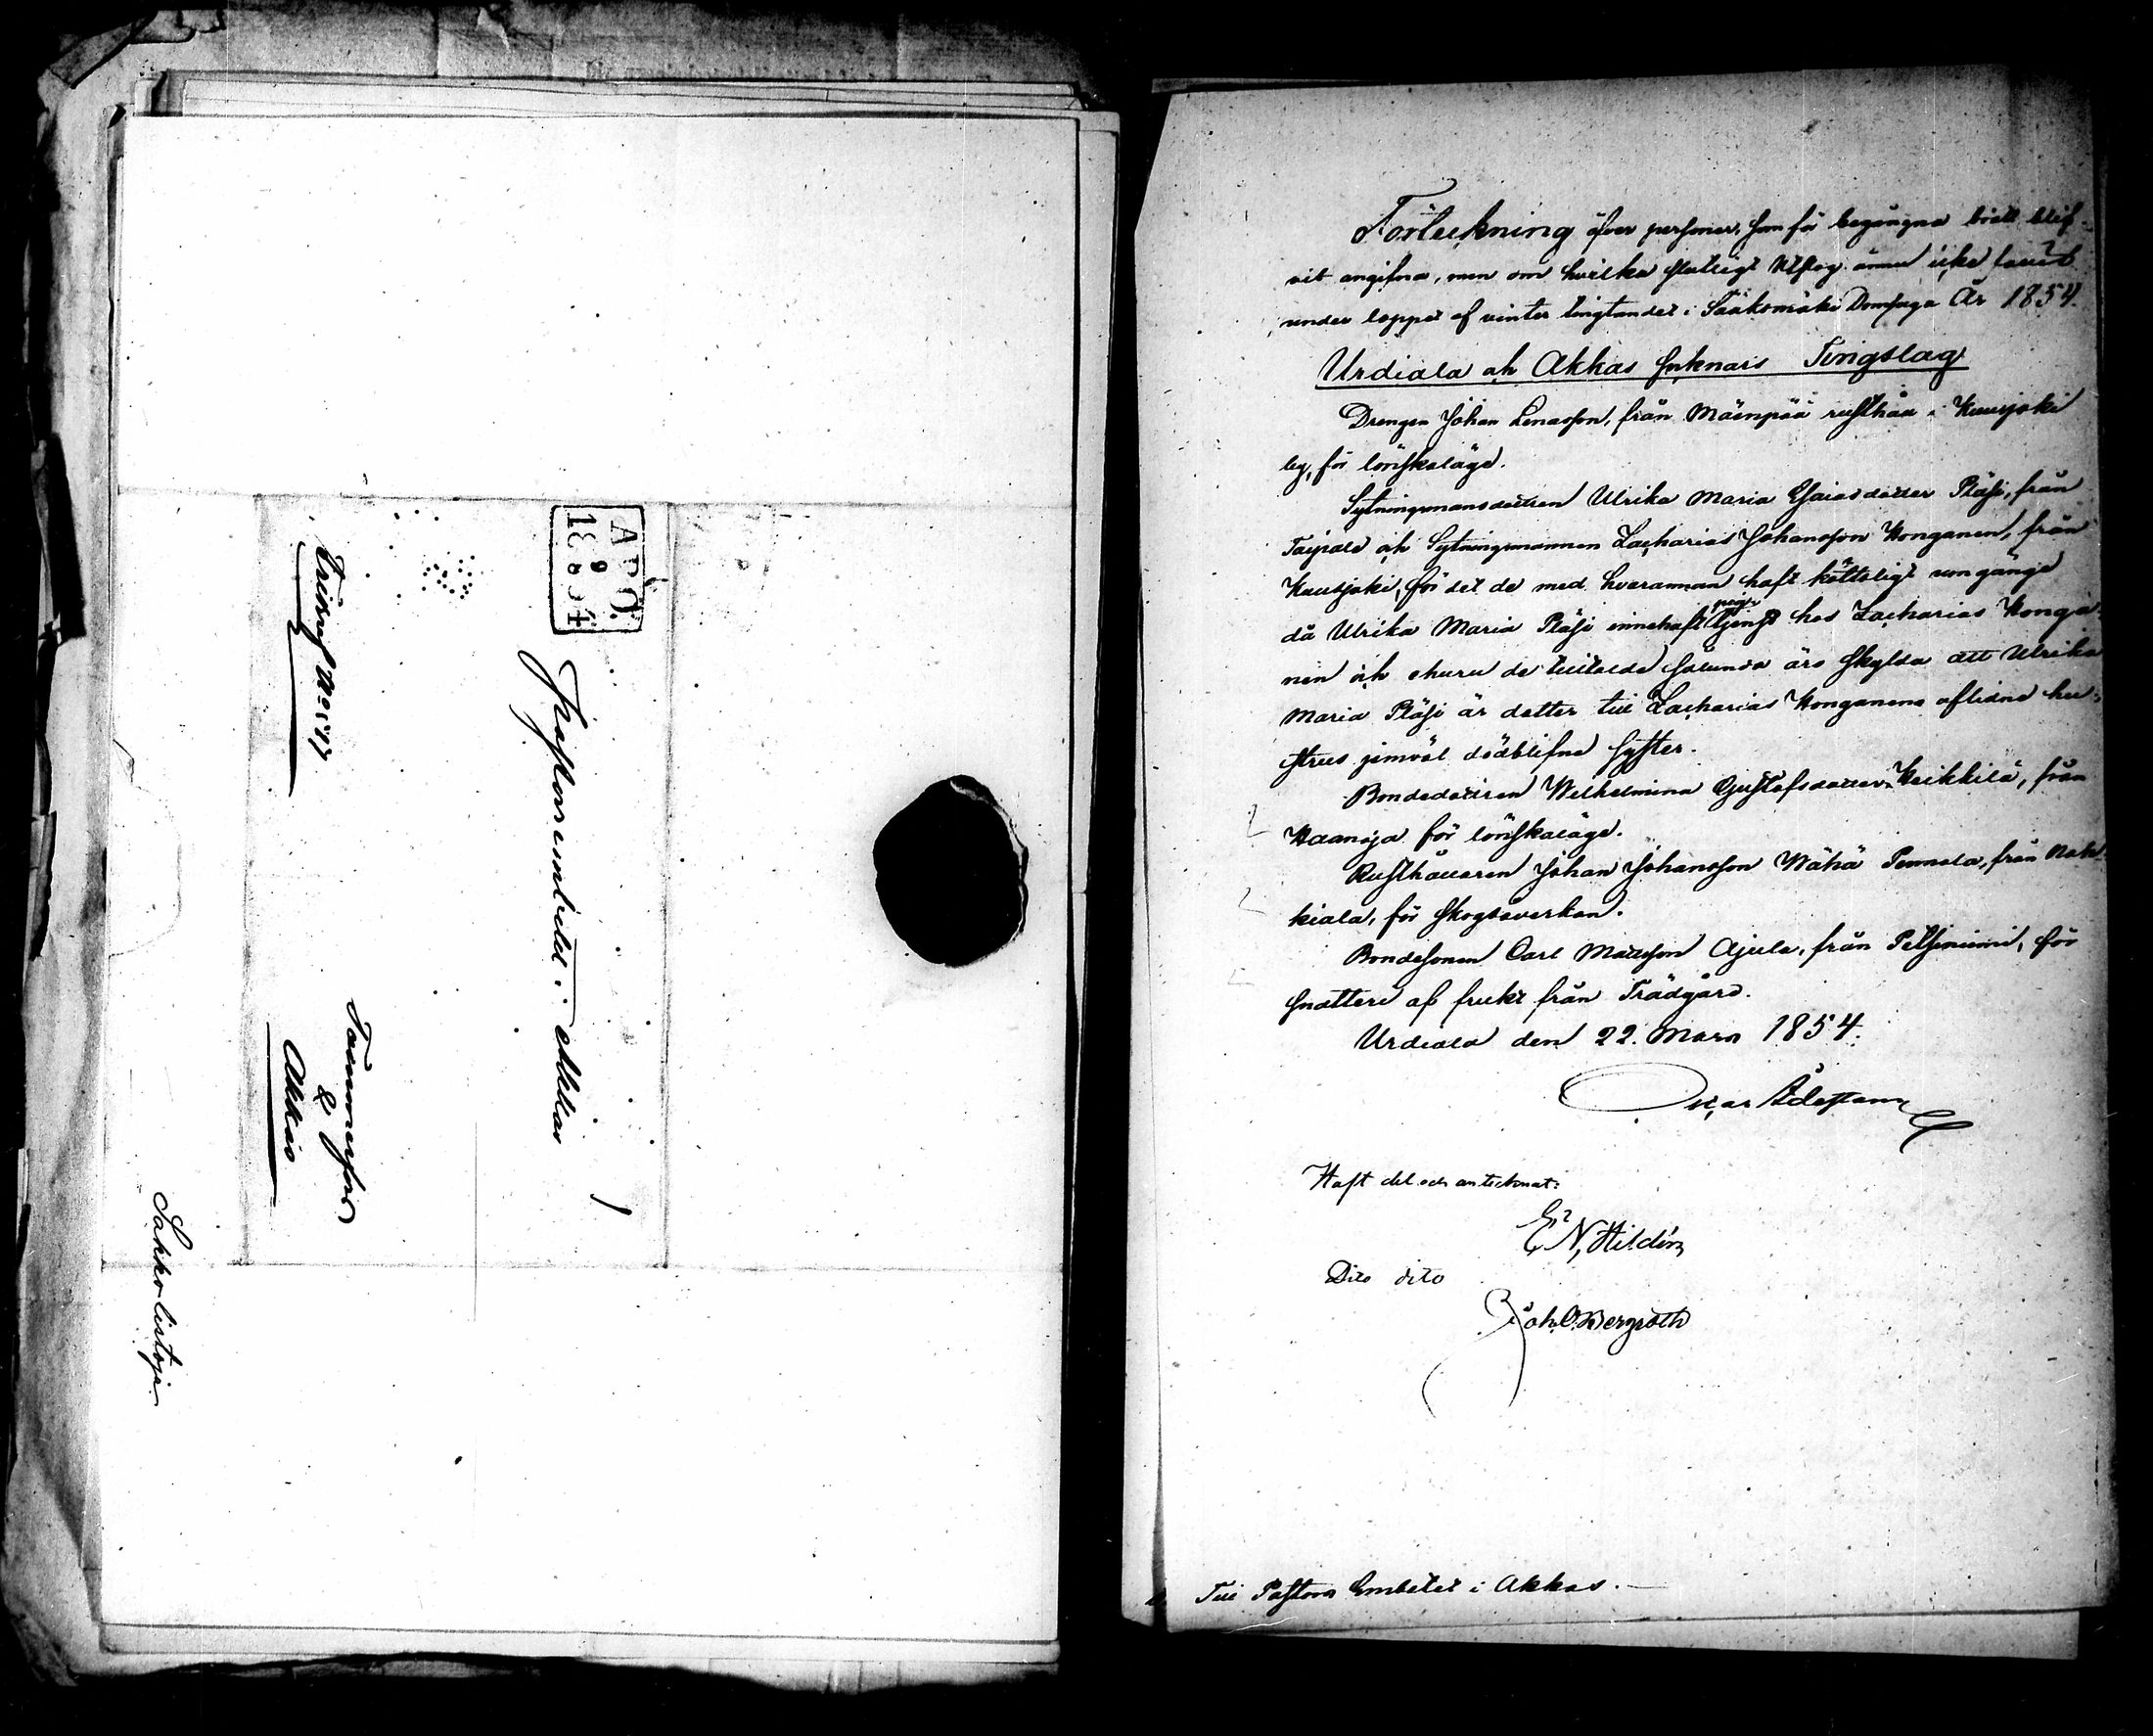 ABO.
18 9/3 54
Pastorsembetet i Akkas
Tammerfors
&
Akkas
Sakkolistoja
Förteckning öfver personer, som för begångna brott blif-
vit angifna, men om hvilka slutligt Utslag ännu icke fallit
under loppet af vinter tingtandet i Sääksmäki Domsaga År 1854.
Urdiala och Akkas soknars Tingslag
Drengen Johan Lenasson, från Mäenpää rusthåll i Kuusjoki
by, för lönskaläge.
Sytningsmansdottren Ulrika Maria Esaiasdotter Pläsi, från
Taipale och Sytningsmannen Zacharias Johansson Konganen, från
Kuusjoki, för det de med hvarannan haft köttsligt umgänge
då Ulrika Maria Pläsi innehaft pige tjenst hos Zacharias Konga-
nen och ehuru de tilltalde sålunda äro skylda att Ulrika
Maria Pläsi är dotter till Zacharias Konganens aflidne hu-
strus jemväl dödblifne syster.
Bondedottren Wilhelmina Gustafsdotter Heikkilä, från
Haanoja för lönskaläge.
Rusthållaren Johan Johansson Wähä Pennala, från Nah-
kiala, för skogsåverkan.
Bondesonen Carl Mattsson Ajula, från Pelsiniemi, för
snatteri af frukt från Trädgård.
Urdiala den 22. Mars 1854.
Oscar Ådestam
Haft del och antecknat:
E N, Hildén
Dito dito
Joh. O. Bergroth
Till Pastors Embetet i Akkas.